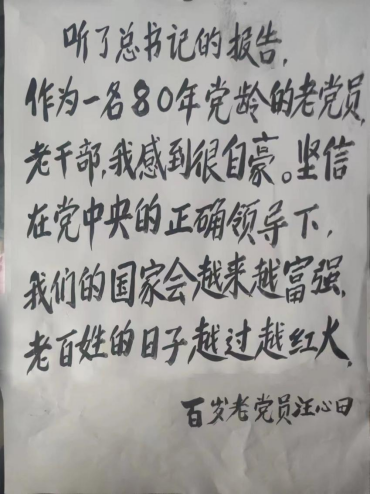 听了总书记的报告,
作为一名80年党龄的老党员,
老干部,我感到很自豪。坚信
在党中央的正确领导下,
我们的国家会越来越富强,
老百姓的日子越过越红火,
百岁老党员汪心日